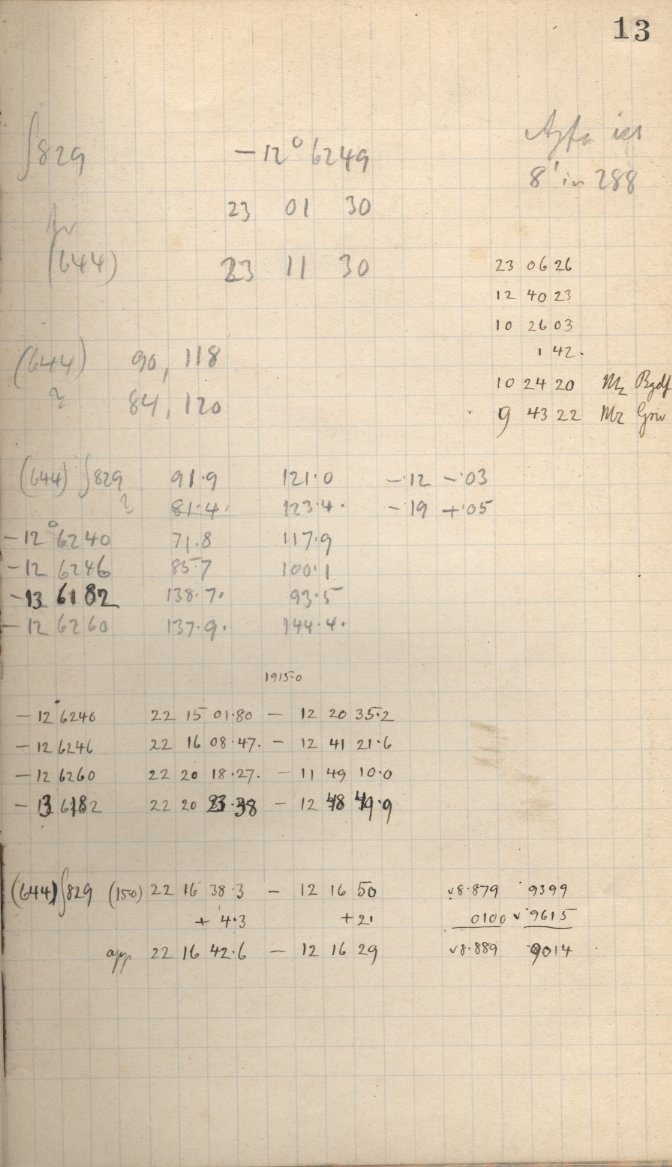 13
∫829 -12° 6249
8' in 288
23 01 30
(644) 23 11 30
23 06 26
12 40 23
10 26 03
1 42.
10 24 20 Mz
9 43 22 Mz
(644) 90, 118
84, 120
(644) ∫829 91.9 121.0 -.12 -.03
81.4. 123.4. -.19 +.05
-12° 6240 71.8 117.9
-12 6246 85.7 100.1
-13 6182 138.7. 93.5
-12 6260 137.9. 144.4.
1915.0
-12° 6240 22 15 01.80 - 12 20 35.2
-12 6246 22 16 08.47. - 12 41 21.6
-12 6260 22 20 18.27. - 11 49 10.0
-13 6182 22 20 23.38 - 12 48 49.9
(644) ∫829 (150) 22 16 38.3 - 12 16 50 v8.879 .9399
+ 4.3 +21 0100 v .9615
app. 22 16 42.6 - 12 16 29 v8.889 .9014